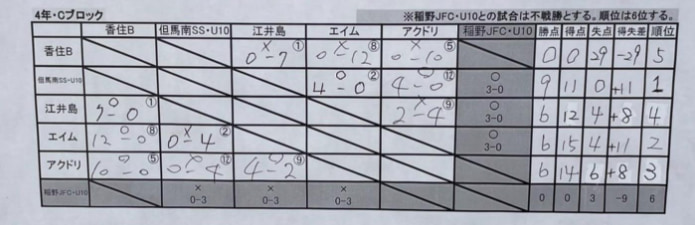 4年・Cブロック ※稲野JFC・U10との試合は不戦勝とする。順位は6位する。
香住B 但馬南SS・U10 江井島 エイム アクドリ 稲野JFC・U10 勝点 得点 失点 得失差 順位
香住B × 0-7 ① × 0-12 ⑧ × 0-10 ⑤ 0 0 29 -29 5
但馬南SS-U10 ○ 4-0 ② ○ 4-0 ⑫ ○ 3-0 9 11 0 +11 1
江井島 ○ 7-0 ① × 2-4 ⑨ ○ 3-0 6 12 4 +8 4
エイム ○ 12-0 ⑧ × 0-4 ② ○ 3-0 6 15 4 +11 2
アクドリ ○ 10-0 ⑤ × 0-4 ⑫ ○ 4-2 ⑨ 6 14 6 +8 3
稲野JFC・U10 × 0-3 × 0-3 × 0-3 0 0 3 -9 6